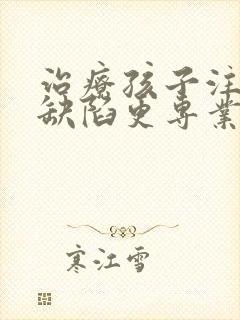 治療孩子注
缺陷更專業
寒江雪